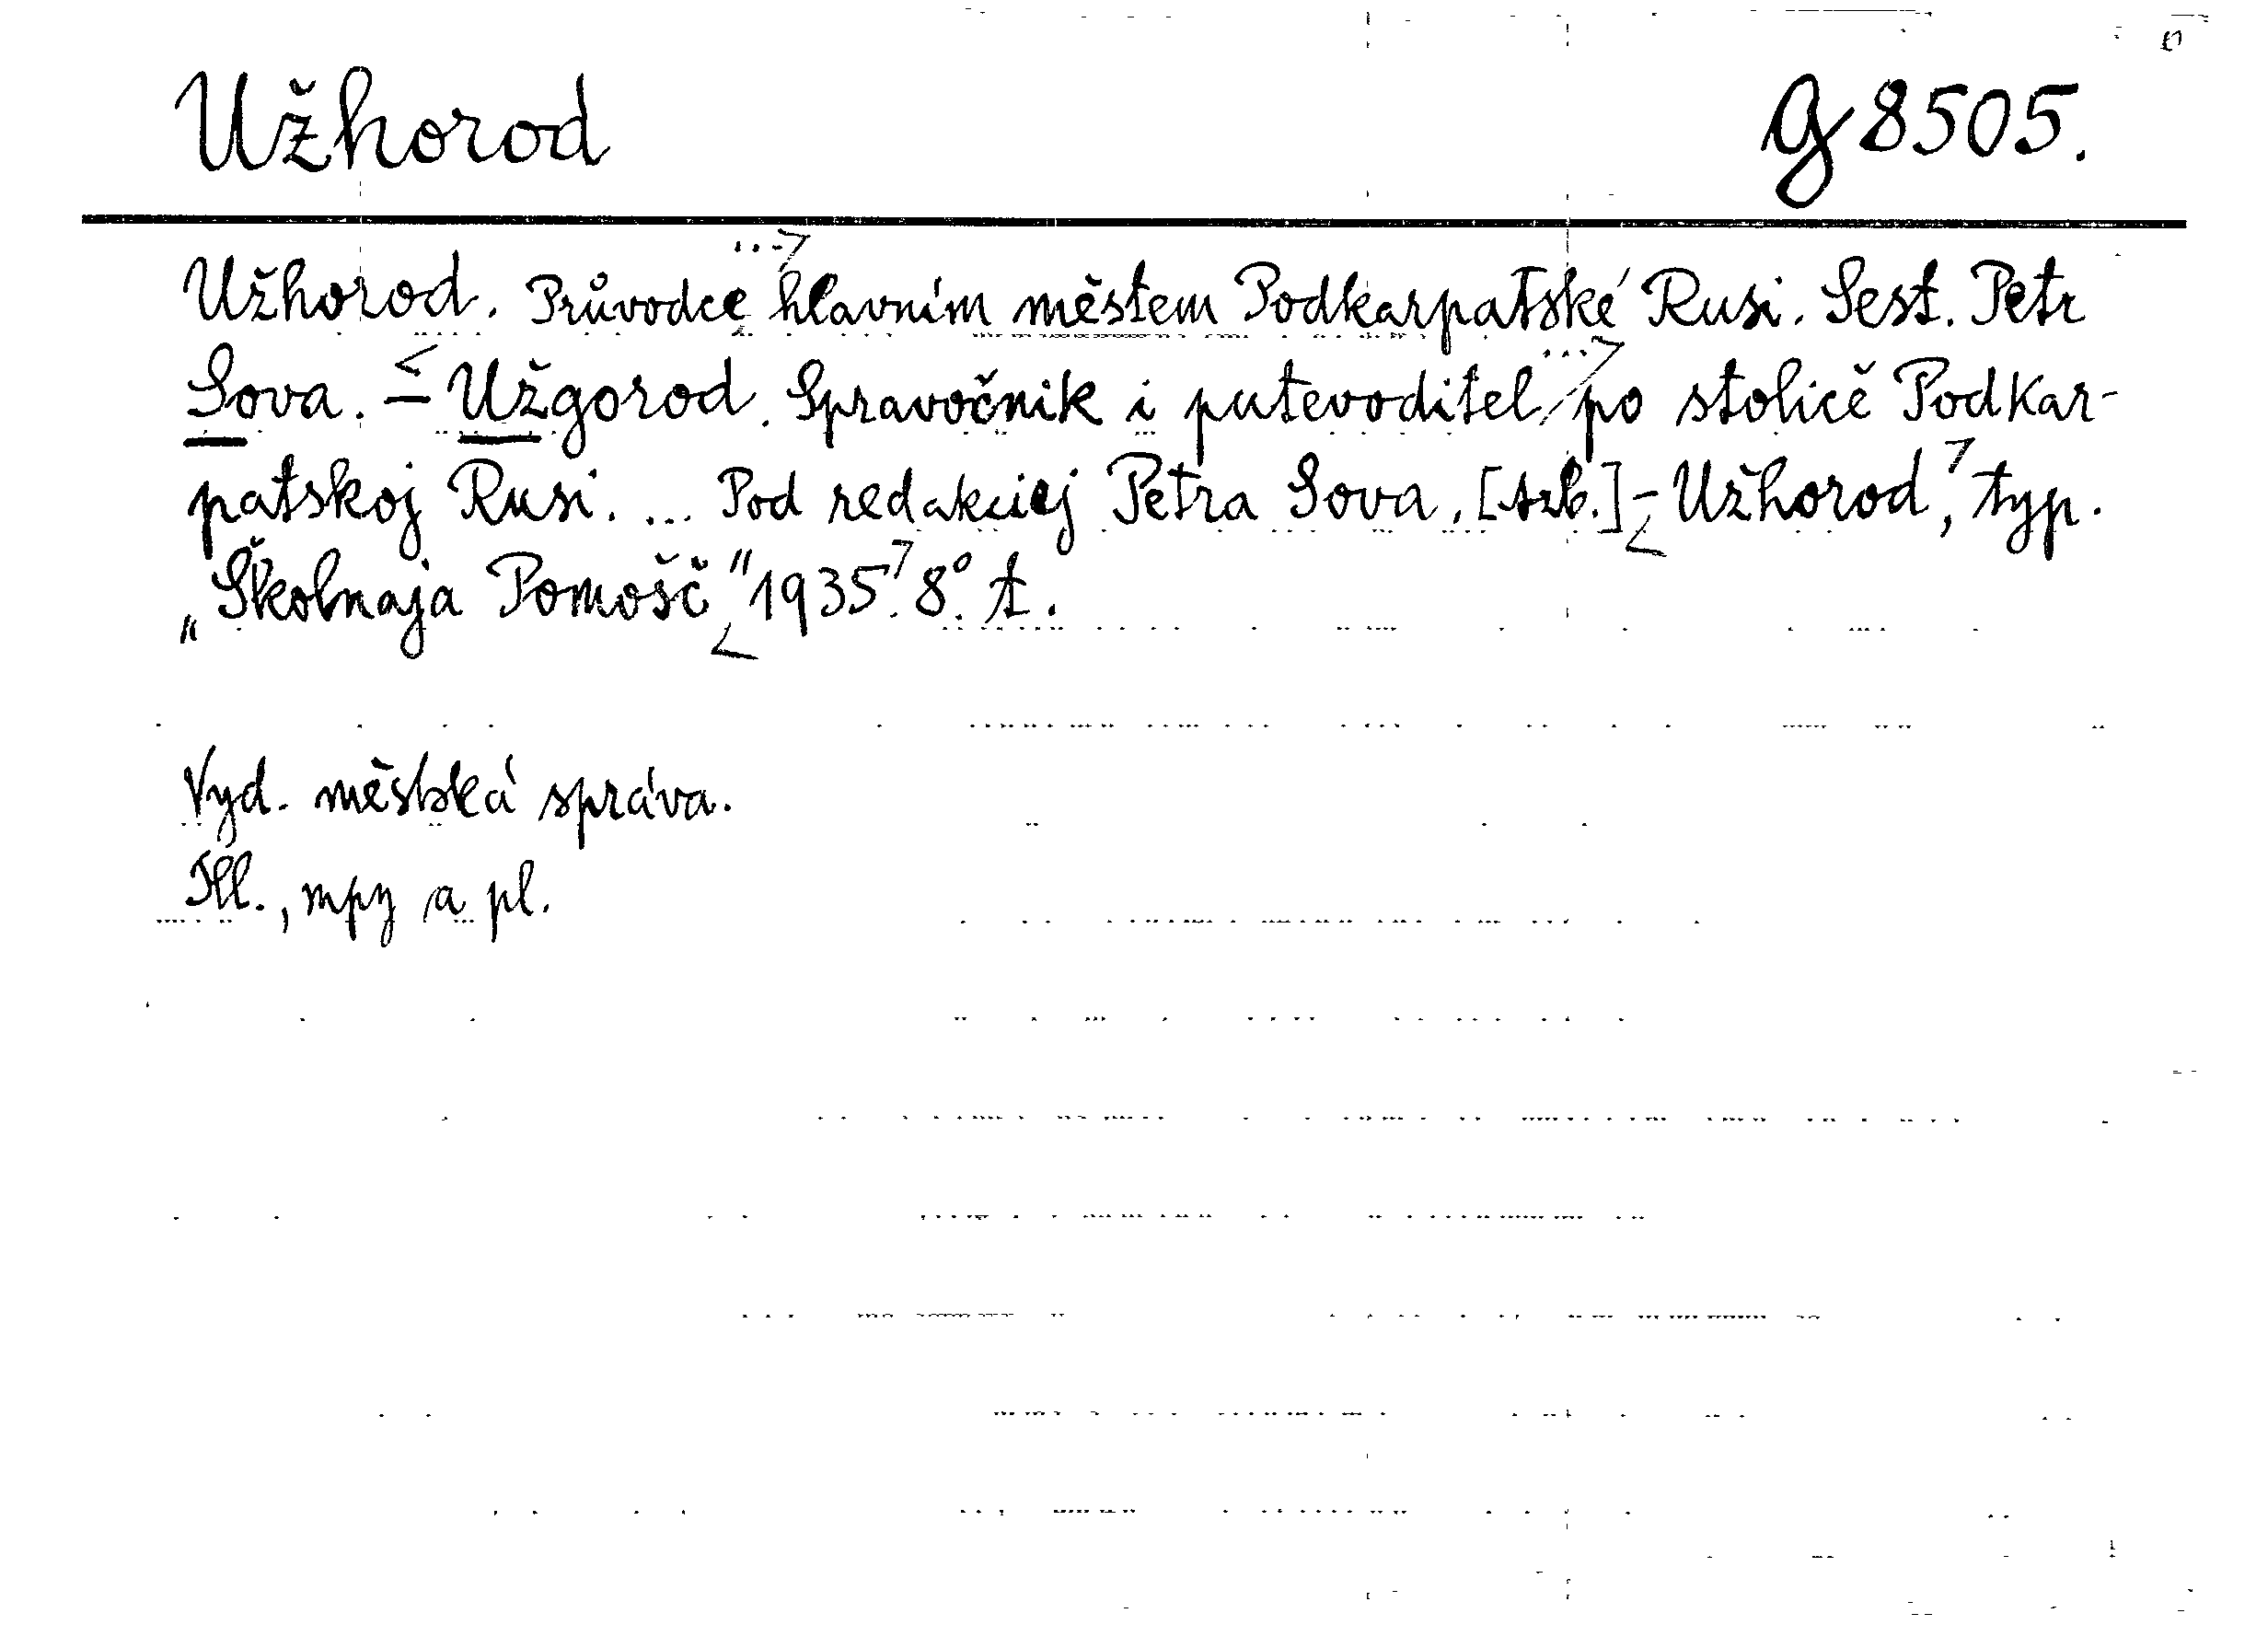 Užhorod
G 8505.
Užhorod. Průvodce hlavním městem Podkarpatské Rusi. Sest. Petr
Sova. – Užgorod. Spravočnik i putevoditel po stolicě Podkar-
patskoj Rusi. ... Pod redakciej Petra Sova. [Azb.] – Užhorod, typ.
„Školnaja Pomošč" 1935. 8°.
Vyd. městská správa.
Ill., mpy a pl.